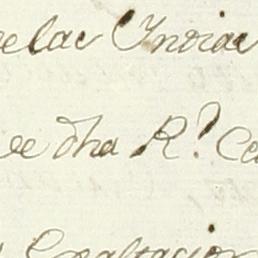 de las Indias
de dha Rl. Ca
Exaltacion